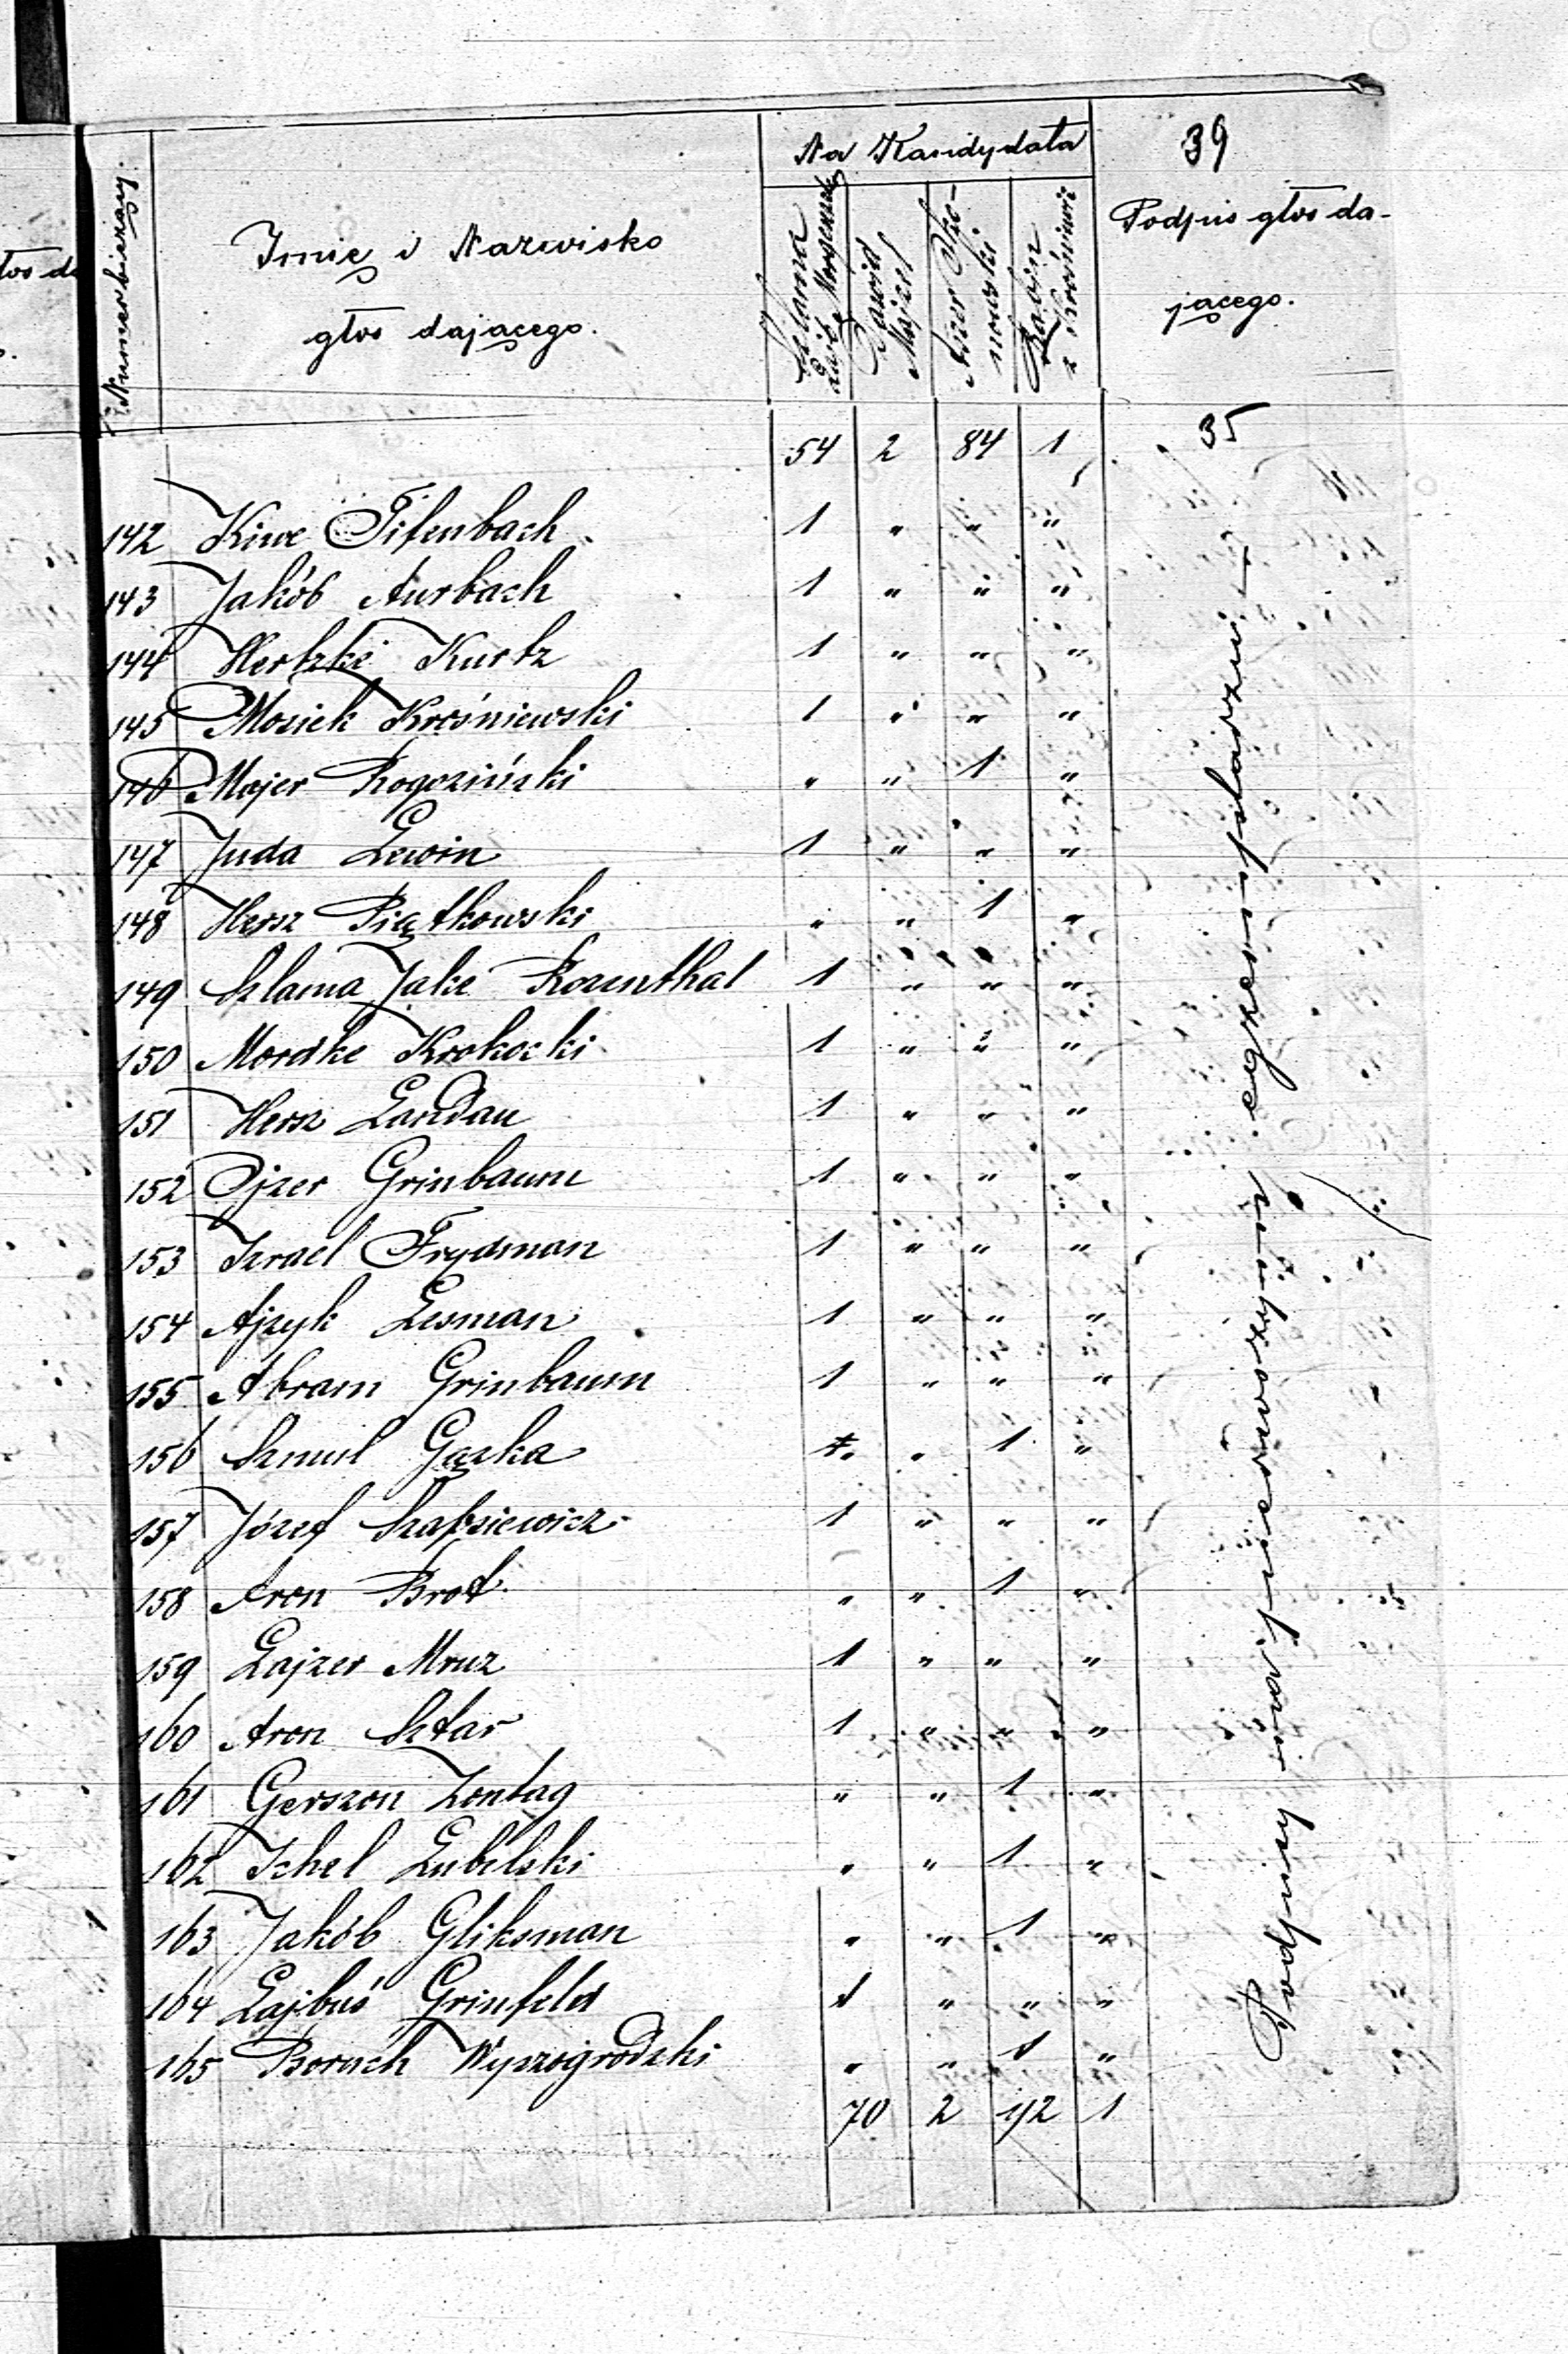 39
Numer bieżący.
Imię i Nazwisko
głos dającego.
Na Kandydata
Dawid
Majzel
Rabin
Podpis głos da-
jącego.
54 2 84 1
35
142 Kiwe Tifenbach 1 " " "
143 Jakób Aurbach 1 " " "
144 Hertzke Kurtz 1 " " "
145 Mosiek Krośniewski 1 " " "
146 Majer Rogoziński " " 1 "
147 Juda Lewin 1 " " "
148 Hersz Piątkowski " " 1 "
149 Szlama Jake Rozenthal 1 " " "
150 Mordke Krokocki 1 " " "
151 Hersz Landau 1 " " "
152 Ojzer Grinbaum 1 " " "
153 Izrael Frydman 1 " " "
154 Ajzyk Lesman 1 " " "
155 Abram Grinbaum 1 " " "
156 Szmul Gąska " " 1 "
157 Józef Szapsiewicz 1 " " "
158 Aron Brot " " 1 "
159 Lajzer Mruz 1 " " "
160 Aron Sztar 1 " " "
161 Gerszon Zontag " " 1 "
162 Ichel Lubelski " " 1 "
163 Jakób Gliksman " " 1 "
164 Lajbuś Grinfeld 1 " " "
165 Boruch Wyszogrodzki " " 1 "
70 2 92 1
Podpisy na pierwszym egzemplarzu